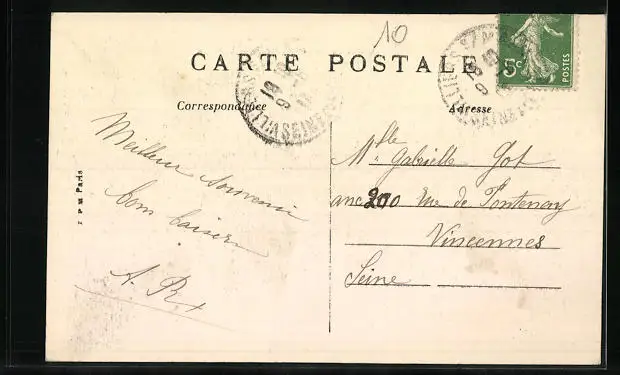 10
CARTE POSTALE
Correspondance
Adresse
5c
POSTES
Meilleur souvenir
bon baiser
A. R
Mlle Gabrielle Got
200 rue de Fontenay
Vincennes
Seine
Paris